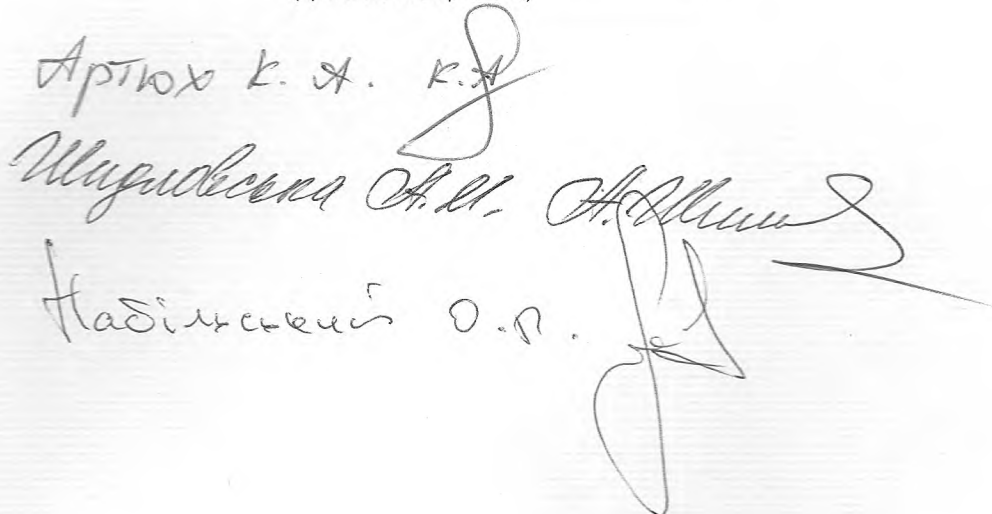 Артюх К. А. К.А
Шидловська А.М. А.Ши
Набільський О.П.